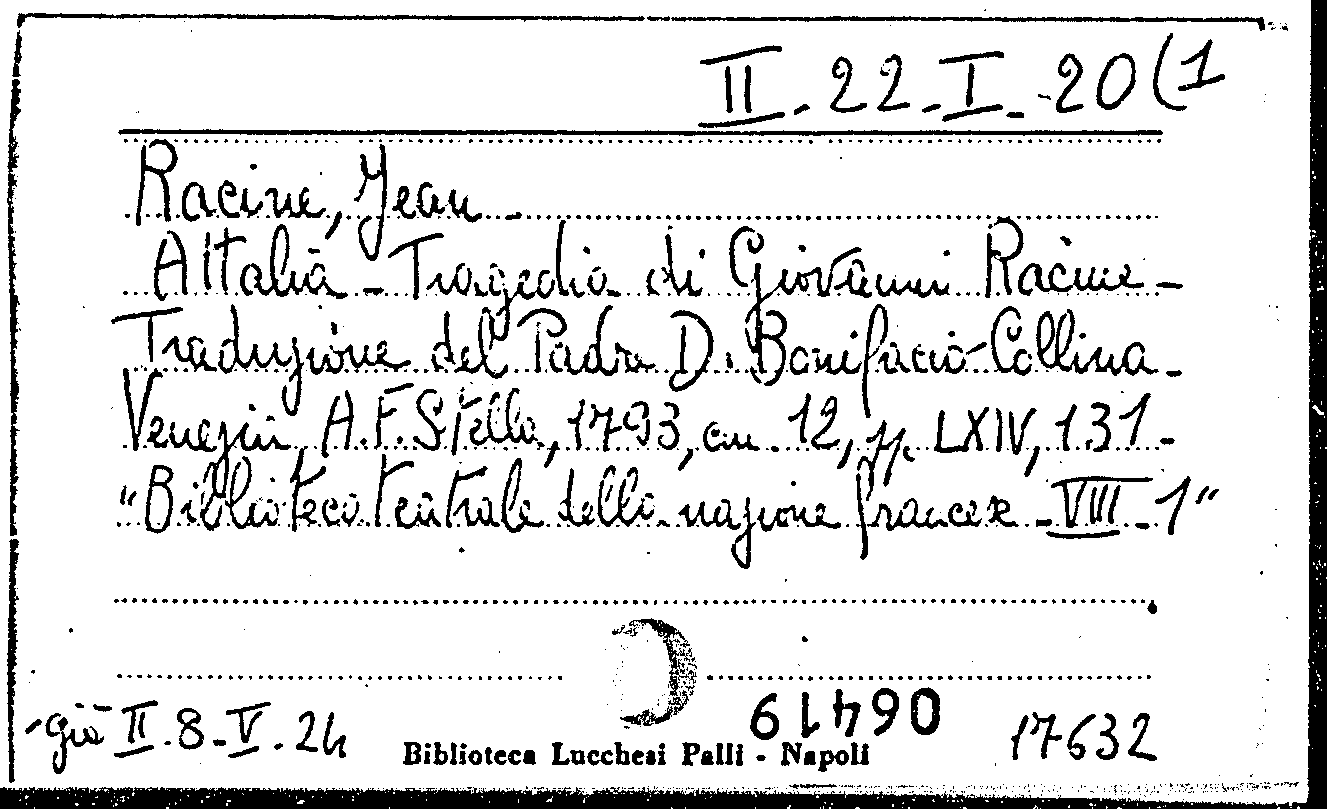 II. 22. I. 20 (1
Racine, Jean -
Attalia - Tragedia di Giovanni Racine -
Traduzione del Padre D. Bonifacio Collina -
Venezia, A. F. Stella, 1793, cm. 12, pp. LXIV, 131 -
"Biblioteca teatrale della nazione francese - VIII - 1"
06419
già II. 8. V. 24
17632
Biblioteca Lucchesi Palli - Napoli